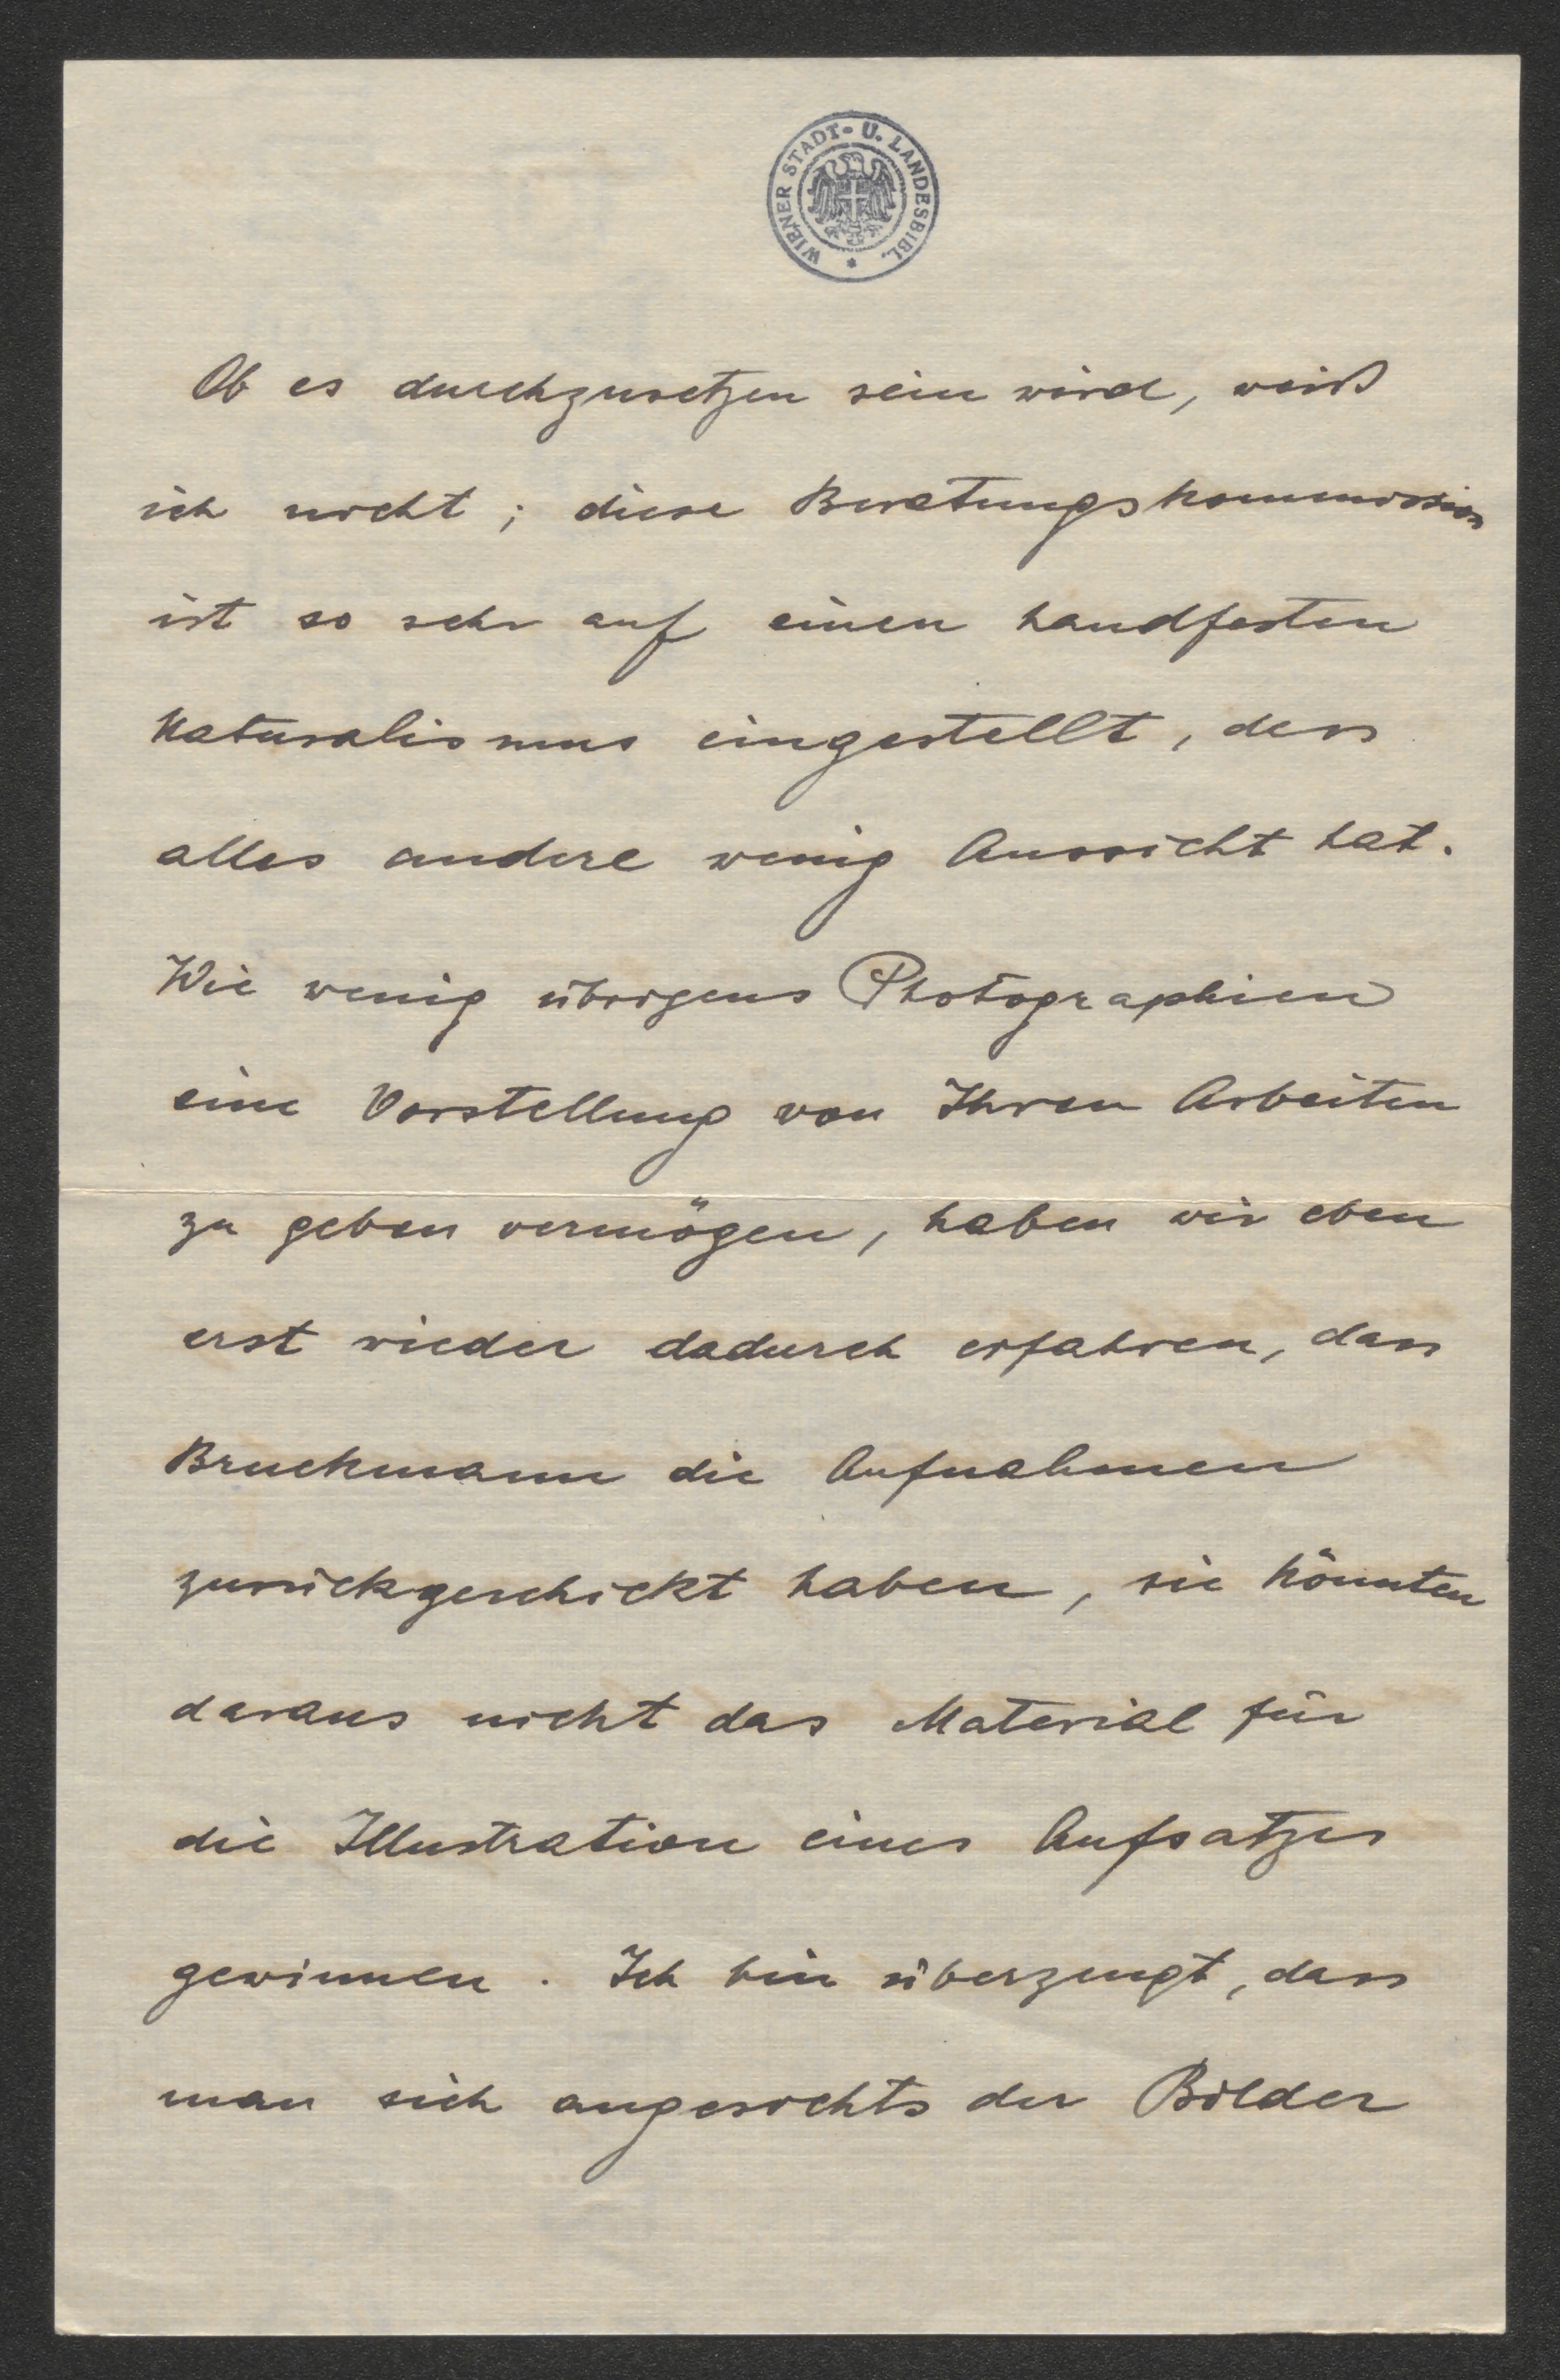 WIENER STADT- U. LANDESBIBL. *
Ob es durchzusetzen sein wird, weiß
ich nicht; diese Beratungskommission
ist so sehr auf einen handfesten
Naturalismus eingestellt, dass
alles andere wenig Aussicht hat.
Wie wenig übrigens Photographien
eine Vorstellung von Ihren Arbeiten
zu geben vermögen, haben wir eben
erst wieder dadurch erfahren, dass
Bruckmann die Aufnahmen
zurückgeschickt haben, sie könnten
daraus nicht das Material für
die Illustration eines Aufsatzes
gewinnen. Ich bin überzeugt, dass
man sich angesichts der Bilder